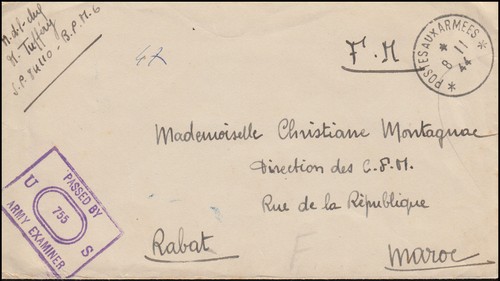 M. Tuffery
S.P. 84110 - B.P.M. 6
47
F.M
POSTES AUX ARMÉES
* 8 - 11
44
Mademoiselle Christiane Montagnac
Direction des C.F.M.
Rue de la République
Rabat
Maroc
PASSED BY
U 755 S
ARMY EXAMINER
F